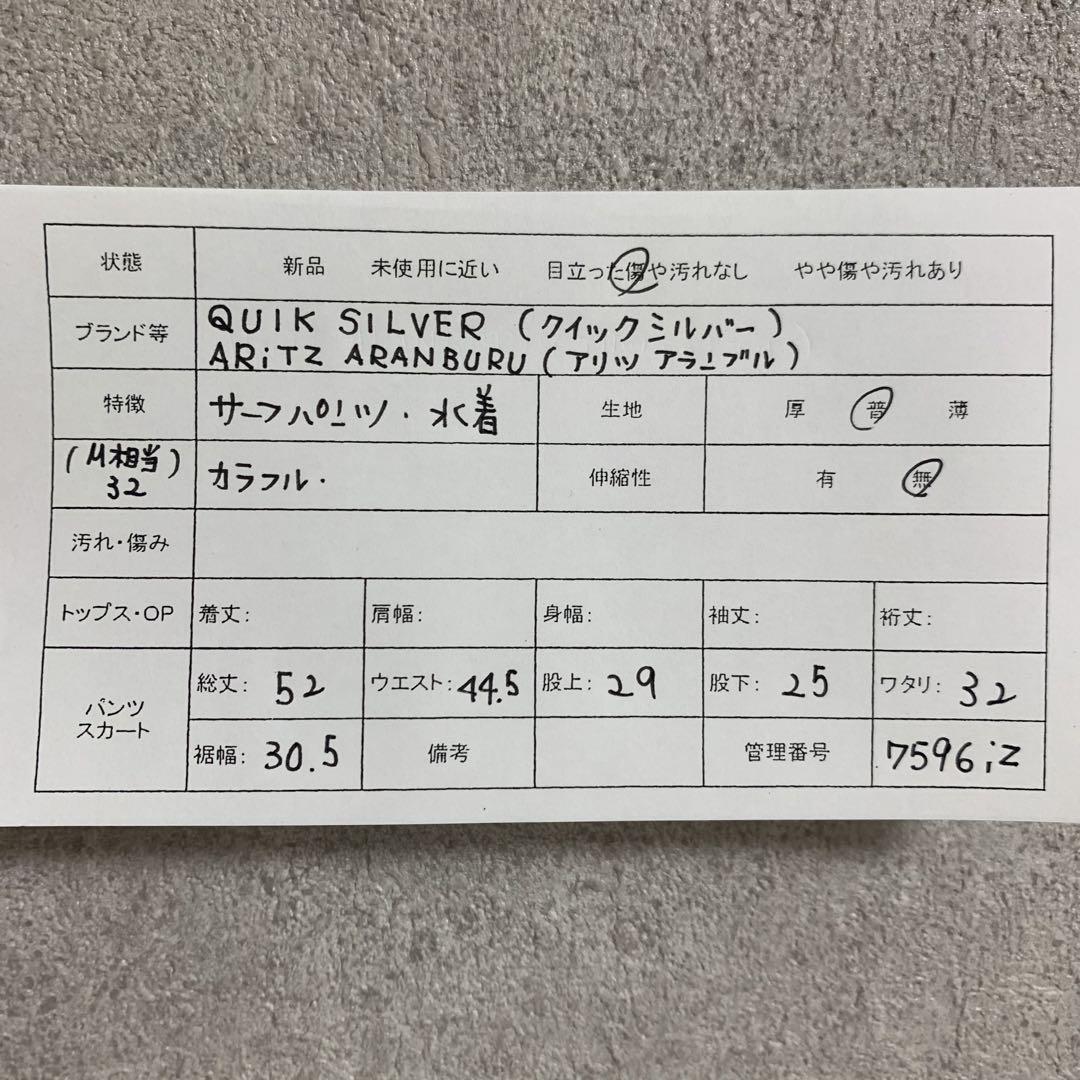 状態 新品 未使用に近い 目立った傷や汚れなし やや傷や汚れあり
ブランド等 QUIK SILVER (クイックシルバー)
ARiTZ ARANBURU (アリツ アランブル)
特徴 サーフパンツ・水着 生地 厚 普 薄
(M相当) 32 カラフル・ 伸縮性 有 無
汚れ・傷み
トップス・OP 着丈: 肩幅: 身幅: 袖丈: 裄丈:
パンツ スカート 総丈: 52 ウエスト: 44.5 股上: 29 股下: 25 ワタリ: 32
裾幅: 30.5 備考 管理番号 7596iz